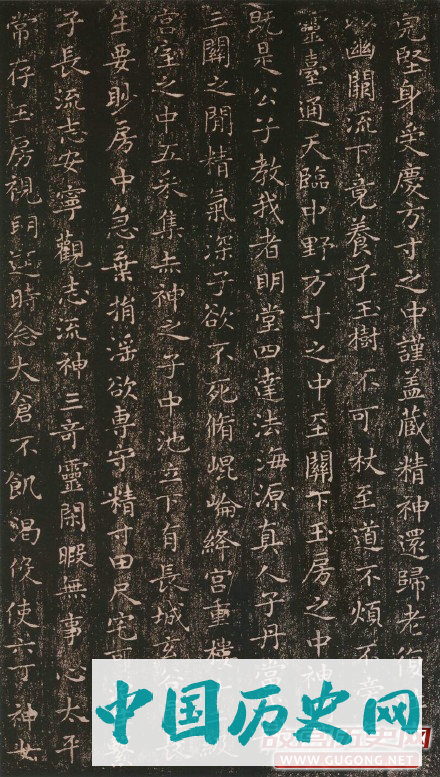 完堅身受慶方寸之中謹盖藏精神還歸老復
以幽闕流下竟養子玉樹不可杖至道不煩不旁
靈臺通天臨中野方寸之中至關下玉房之中神
既是公子教我者明堂四達法海源真人子丹當
三關之閒精氣深子欲不死脩崐崘絳宮重樓十二級
宮室之中五采集赤神之子中池立下有長城玄谷
生要眇房中急棄捐淫欲専守精寸田尺宅可
子長流志安寧觀志流神三奇靈閑暇無事心太平
常存玉房視明達時念大倉不飢渴役使六丁神女
中国历史网
WWW.GUGONG.NET